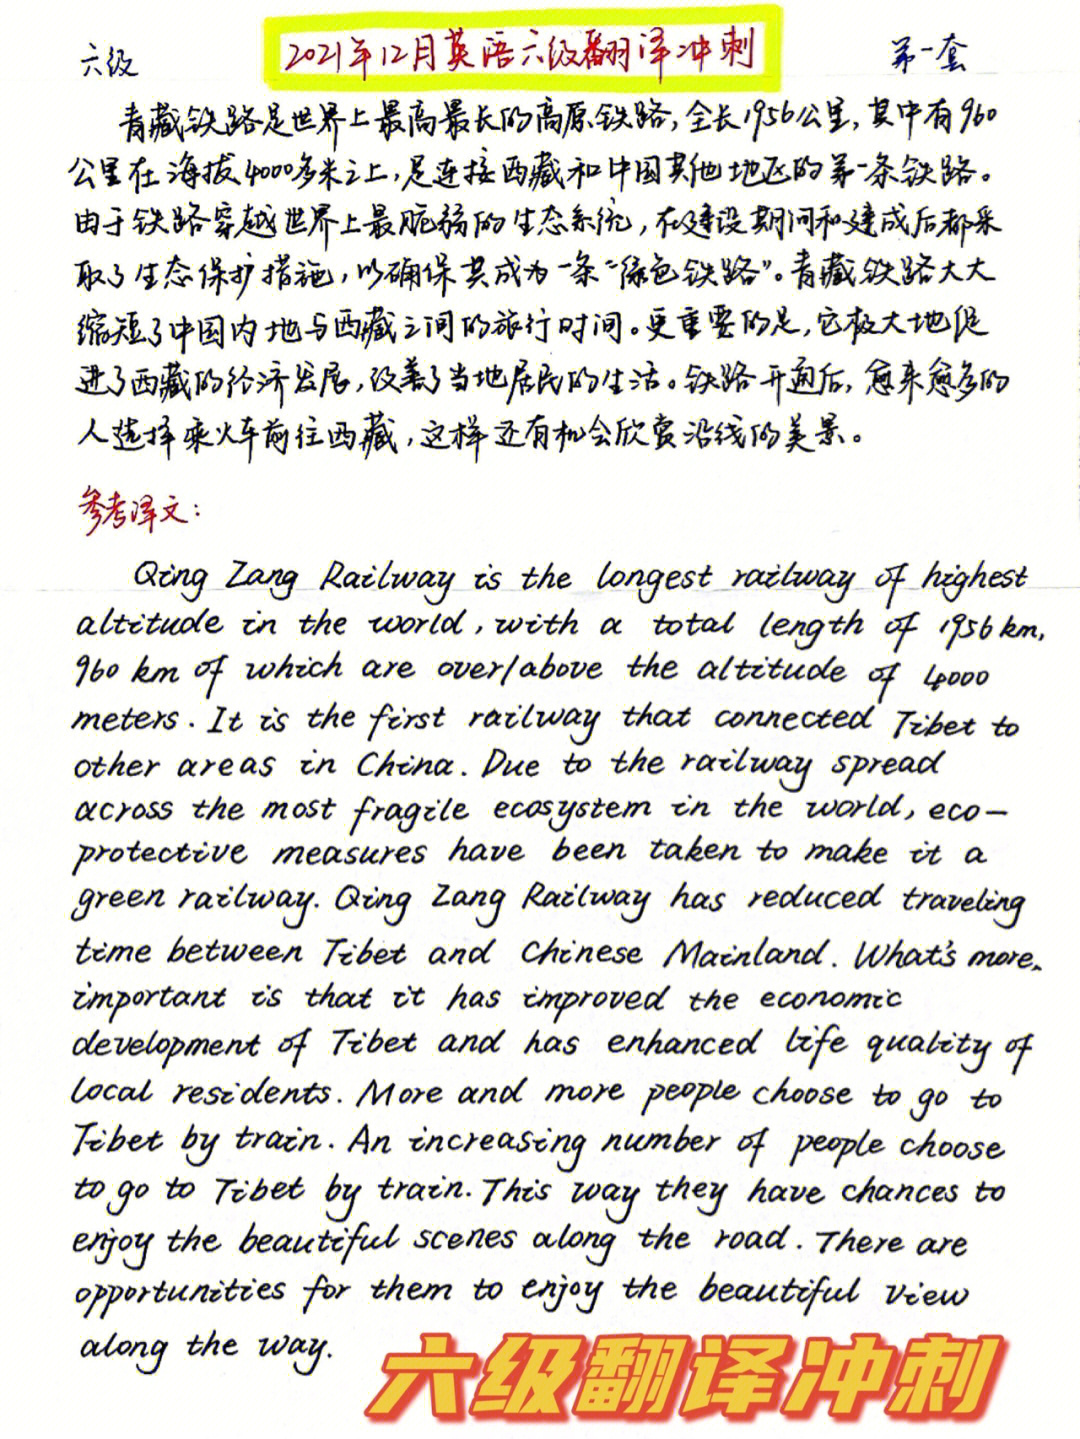 六级
2021年12月英语六级翻译冲刺
第一套
青藏铁路是世界上最高最长的高原铁路,全长1956公里,其中有960
公里在海拔4000多米之上,是连接西藏和中国其他地区的第一条铁路。
由于铁路穿越世界上最脆弱的生态系统,在建设期间和建成后都采
取了生态保护措施,以确保其成为一条“绿色铁路”。青藏铁路大大
缩短了中国内地与西藏之间的旅行时间。更重要的是,它极大地促
进了西藏的经济发展,改善了当地居民的生活。铁路开通后,愈来愈多的
人选择乘火车前往西藏,这样还有机会欣赏沿线的美景。
参考译文:
Qing Zang Railway is the longest railway of highest
altitude in the world, with a total length of 1956 km,
960 km of which are over/above the altitude of 4000
meters. It is the first railway that connected Tibet to
other areas in China. Due to the railway spread
across the most fragile ecosystem in the world, eco-
protective measures have been taken to make it a
green railway. Qing Zang Railway has reduced traveling
time between Tibet and Chinese Mainland. What's more,
important is that it has improved the economic
development of Tibet and has enhanced life quality of
local residents. More and more people choose to go to
Tibet by train. An increasing number of people choose
to go to Tibet by train. This way they have chances to
enjoy the beautiful scenes along the road. There are
opportunities for them to enjoy the beautiful view
along the way.
六级翻译冲刺